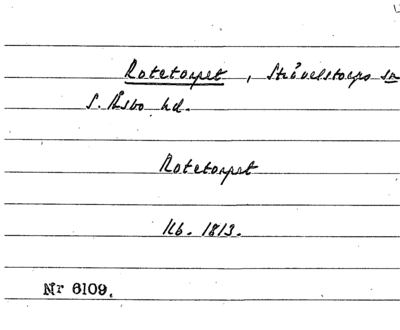 Rotetorpet, Strövelstorps sn
S. Åsbo hd.
Rotetorpet
Kb. 1813.
Nr 6109.